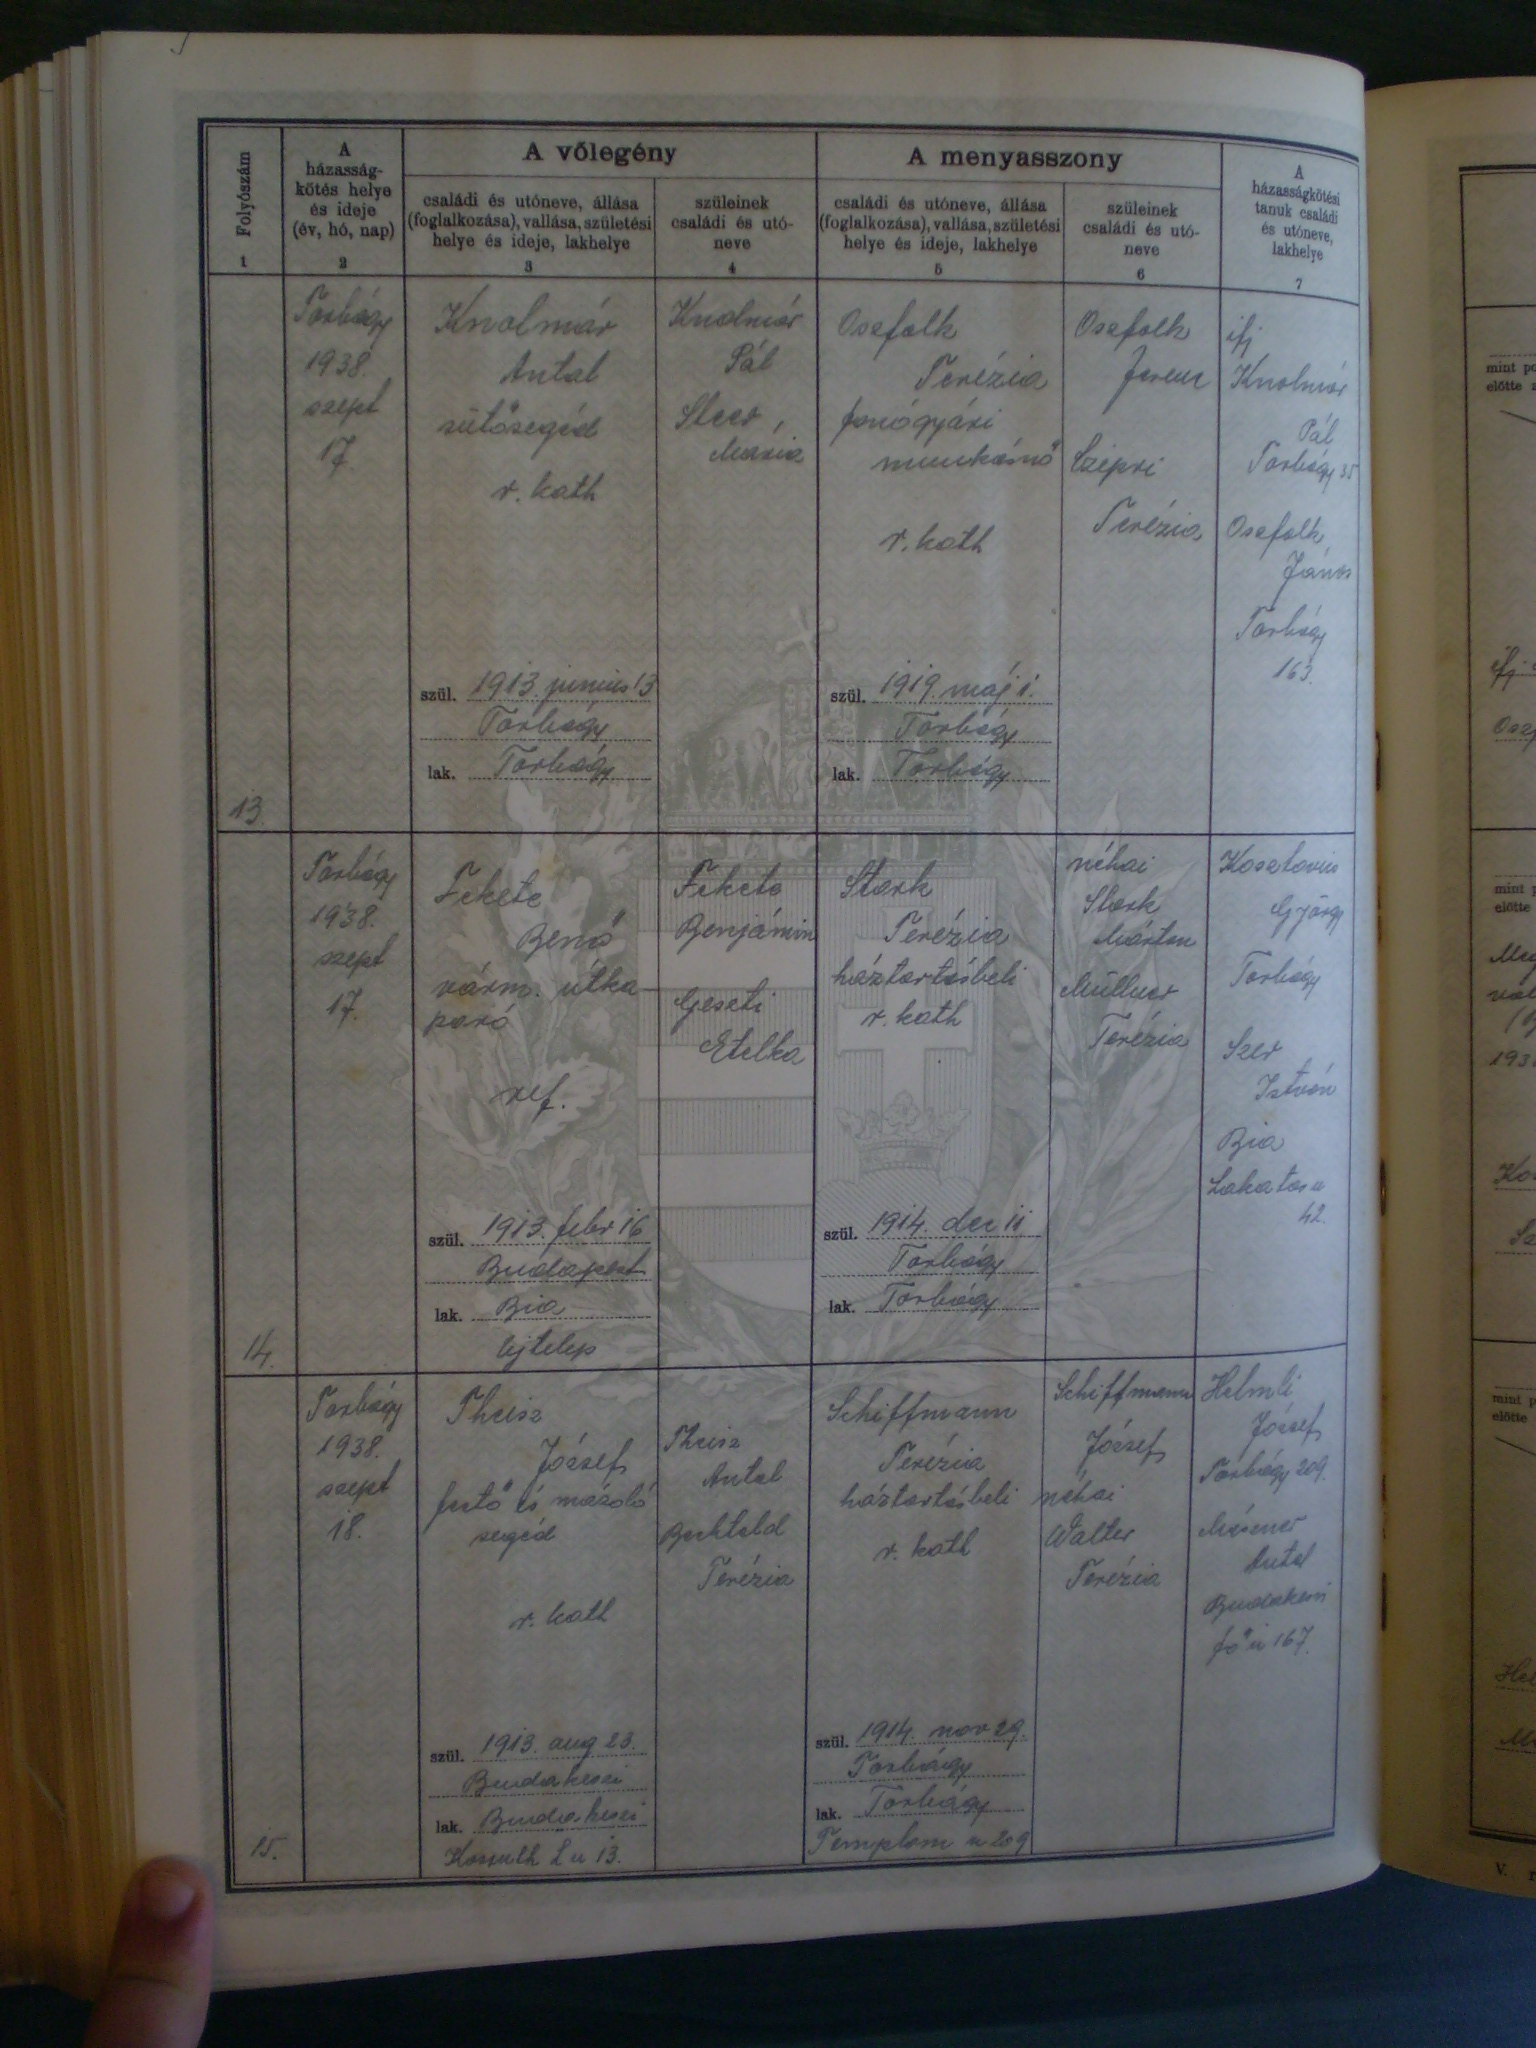 Folyószám
1
A
házasság-
kötés helye
és ideje
(év, hó, nap)
2
A vőlegény
családi és utóneve, állása
(foglalkozása), vallása, születési
helye és ideje, lakhelye
3
szüleinek
családi és utó-
neve
4
A menyasszony
családi és utóneve, állása
(foglalkozása), vallása, születési
helye és ideje, lakhelye
5
szüleinek
családi és utó-
neve
6
A
házasságkötési
tanuk családi
és utóneve,
lakhelye
7
13.
Torbágy
1938.
szept
17.
Knolmár
Antal
sütősegéd
r. kath
szül. 1913. junius 13
Torbágy
lak. Torbágy
Knolmár
Pál
Steer
Mária
Oszfolk
Terézia
fonógyári
munkásnő
r. kath
szül. 1919. máj 1.
Torbágy
lak. Torbágy
Oszfolk
Ferenc
Czipri
Terézia
ifj
Knolmár
Pál
Torbágy 35
Oszfolk
János
Torbágy
163.
14.
Torbágy
1938.
szept
17.
Fekete
Benő
várm. útka
paró
ref.
szül. 1913. febr 16
Budapest
lak. Bia
Ujtelep
Fekete
Benjámin
Geszti
Etelka
Stark
Terézia
háztartásbeli
r. kath
szül. 1914. dec 11
Torbágy
lak. Torbágy
néhai
Stark
Márton
Müllner
Terézia
György
Torbágy
Szer
István
Bia
Lakatos u
42.
15.
Torbágy
1938.
szept
18.
Theisz
József
festő és mázoló
segéd
r. kath
szül. 1913. aug 23.
Budakeszi
lak. Budakeszi
Kossuth L u 13.
Theisz
Antal
Bechtold
Terézia
Schiffmann
Terézia
háztartásbeli
r. kath
szül. 1914. nov 29.
Torbágy
lak. Torbágy
Templom u 209
Schiffmann
József
néhai
Walter
Terézia
Helmli
József
Torbágy 209.
Antal
Budakeszi
fő u 167.
mint
előtte
mint
előtte
193
mint
előtte
V.